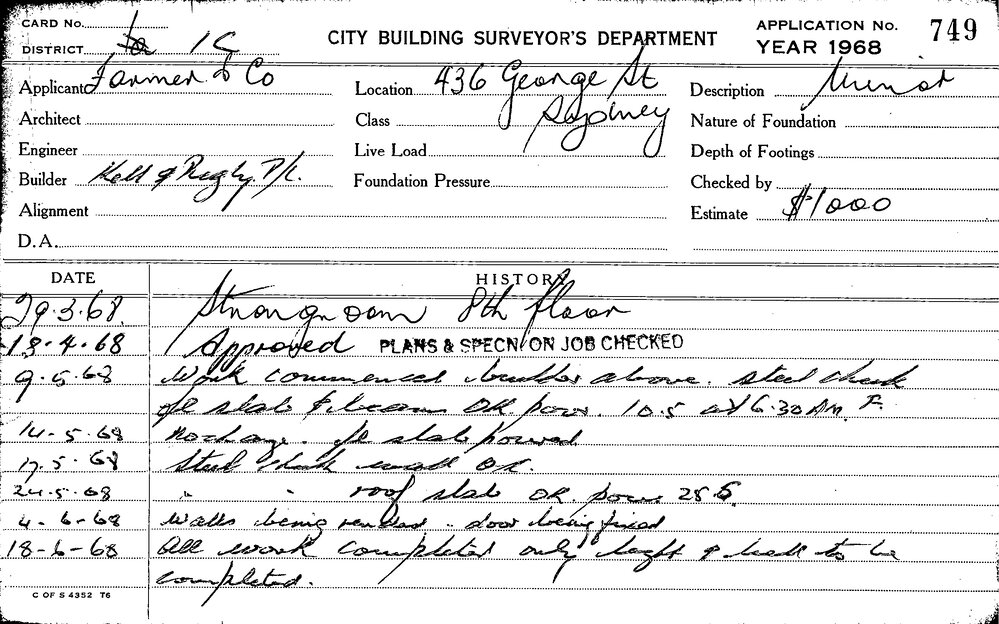 CARD No.
DISTRICT 1C
CITY BUILDING SURVEYOR'S DEPARTMENT
APPLICATION No. 749
YEAR 1968
Applicant Farmer & Co
Location 436 George St
Sydney
Description Minor
Architect
Class
Nature of Foundation
Engineer
Live Load
Depth of Footings
Builder Kell & Rigby P/L.
Foundation Pressure
Checked by
Alignment
Estimate $1000
D.A.
DATE HISTORY
29.3.68 Strongroom 8th floor
18.4.68 Approved PLANS & SPECN/ON JOB CHECKED
9.5.68 Work commenced builder above. Steel check
slab & beams OK pour. 10.5 at 6.30 AM.
14-5-68 No change. slab poured
17.5.68 Steel check wall OK.
24.5.68 " " roof slab OK pour 28.5
4-6-68 Walls being rendered. door being fixed
18-6-68 All work completed only to be
completed.
C OF S 4352 T6